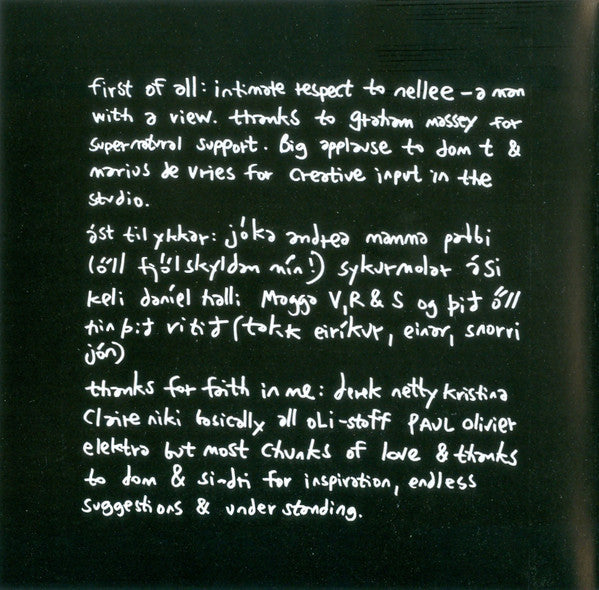 first of all: intimate respect to nellee – a man
with a view. thanks to graham massey for
supernatural support. Big applause to dom t &
marius de vries for creative input in the
studio.
ást til ykkar: jóka andrea mamma pabbi
(öll fjölskyldan mín!) sykurmolar ási
keli daníel halli Magga V, R & S og þið öll
hin þið vitið (takk eiríkur, einar, snorri
jón)
thanks for faith in me: derek netty kristina
Claire niki basically all oLi-staff PAUL olivier
elektra but most chunks of love & thanks
to dom & sindri for inspiration, endless
suggestions & understanding.